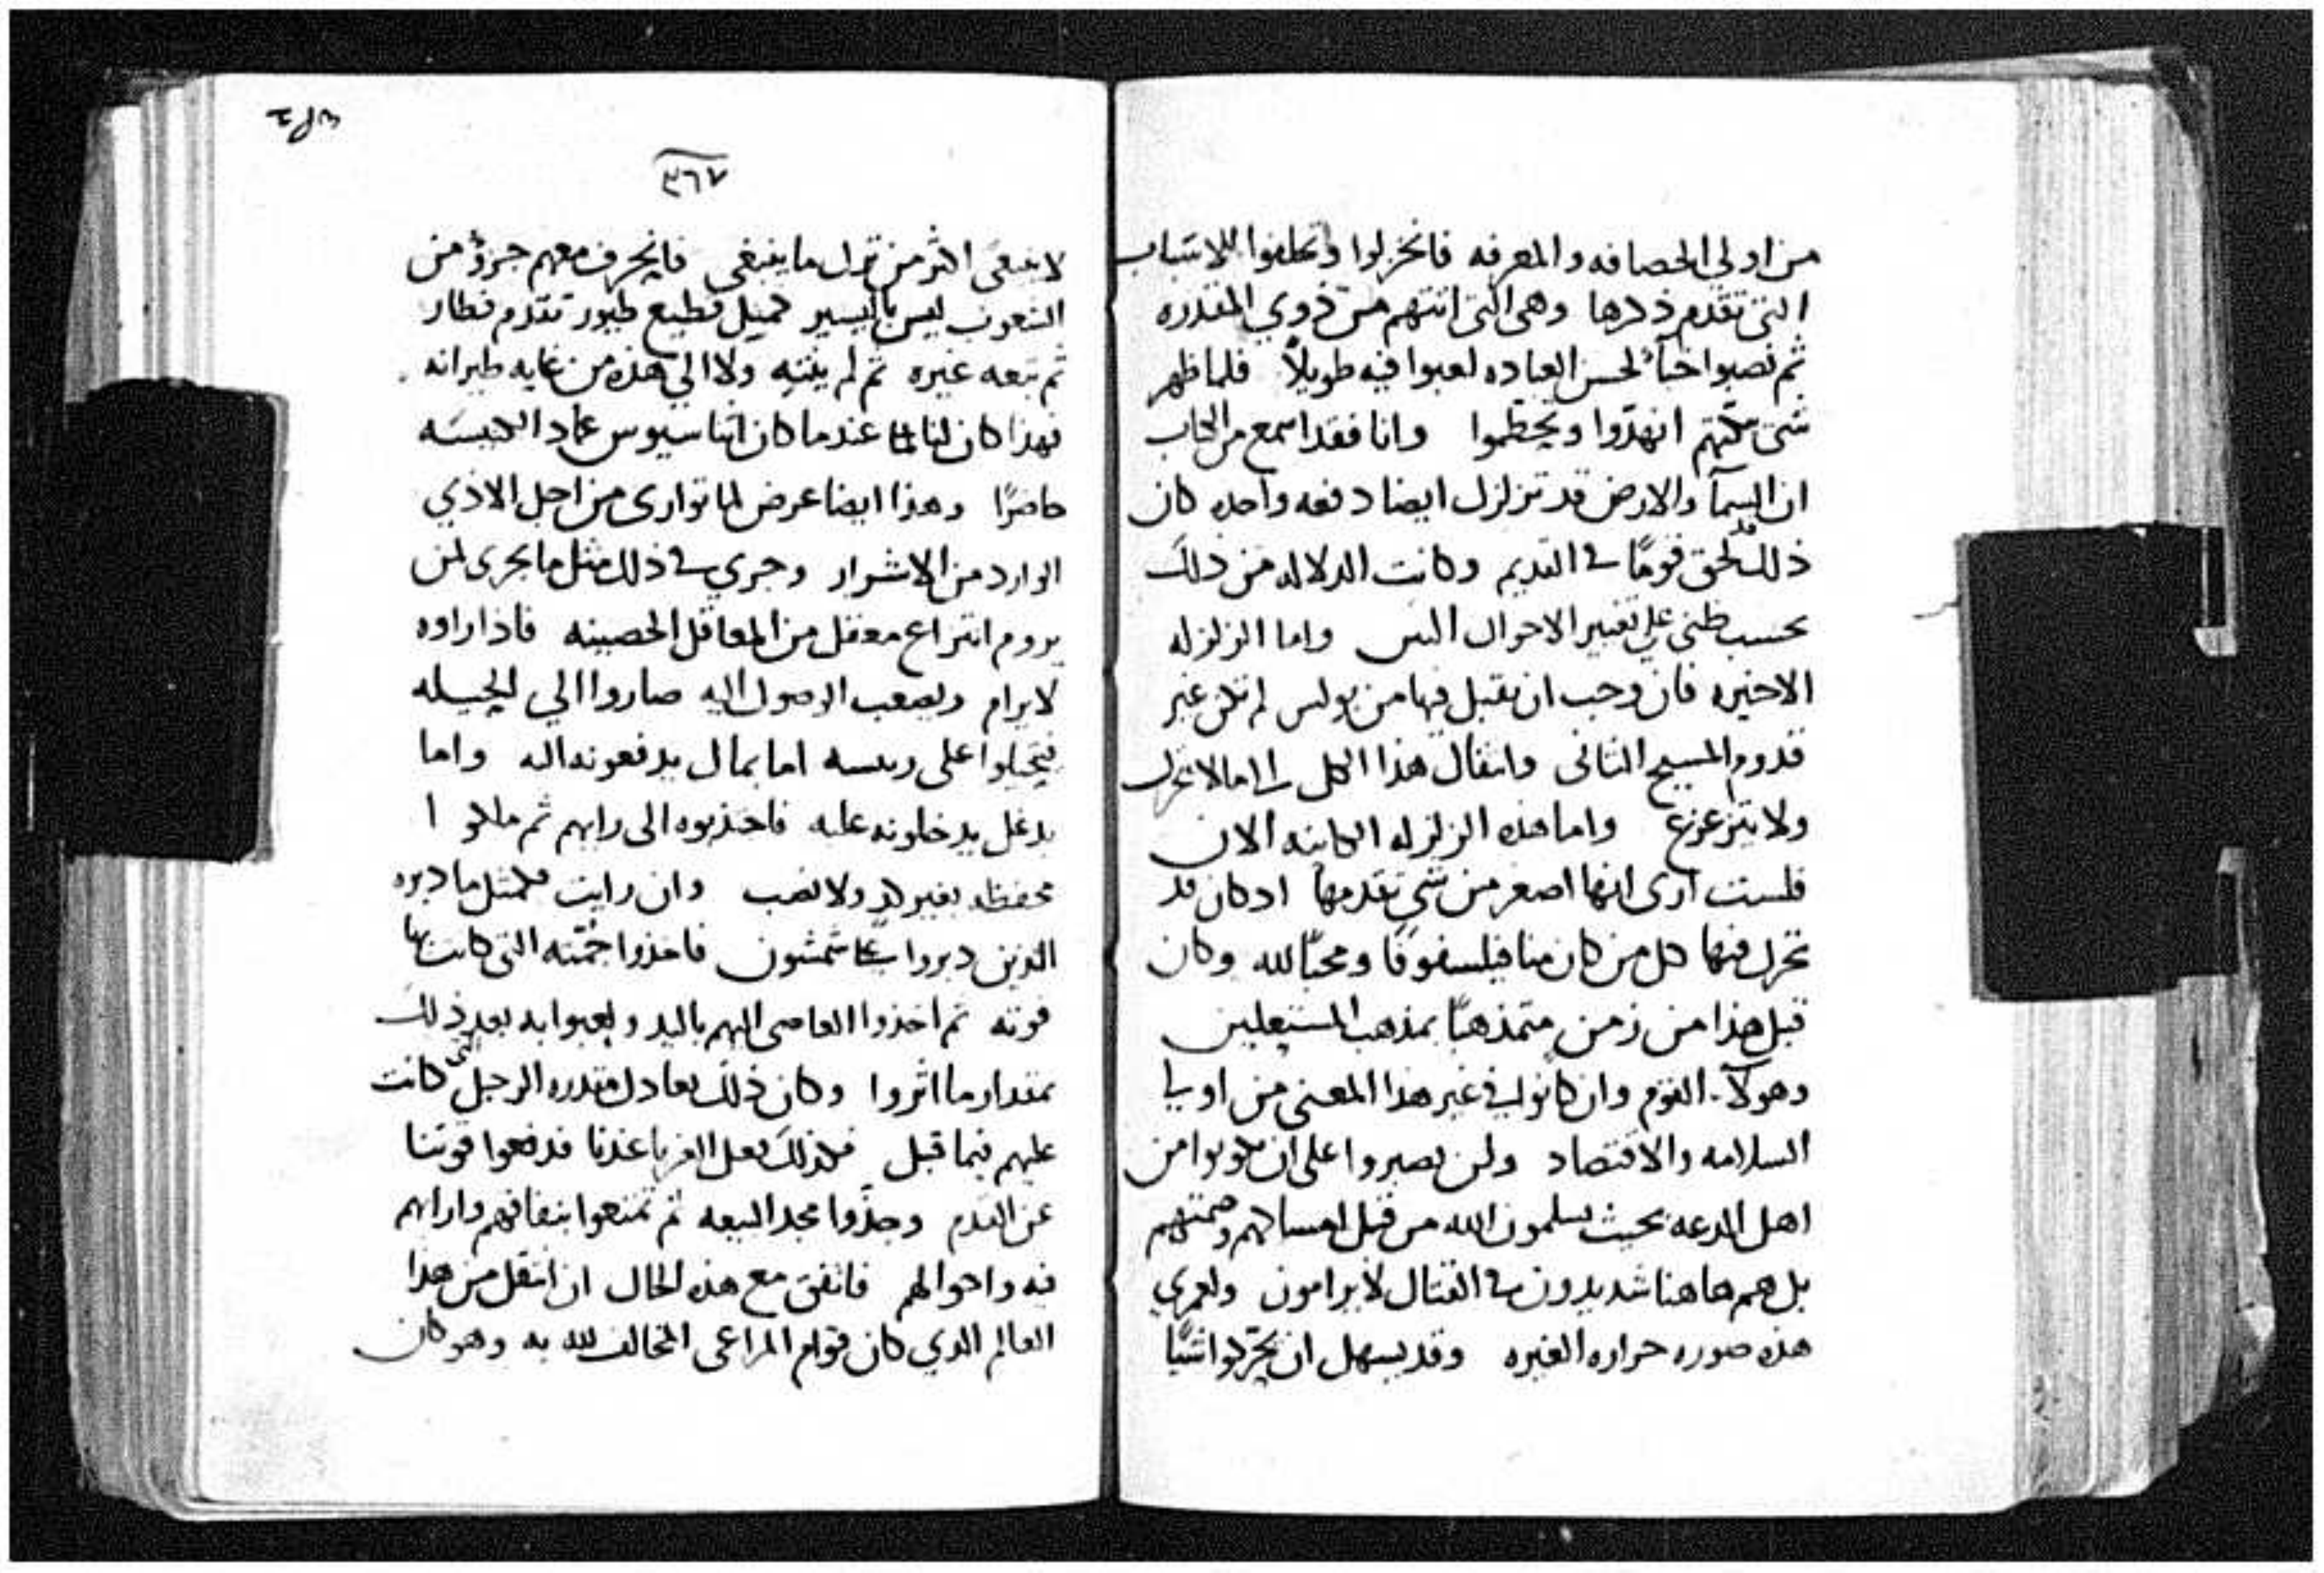 من اولي الحصافه والمعرفه فانخزلوا وتخلفوا للاسباب
التي تقدم ذكرها وهي التي اتتهم من ذوي المقدره
ثم نصبوا خبآ لحسن العباده لعبوا فيه طويلاً فلما ظهر
انهدّوا وتحطموا وانا فقد اسمع من الكتاب
ان السمآ والارض قد تزلزل ايضا دفعه واحده كان
ذلك قد لحق قومًا في القديم وكانت الدلاله من ذلك
بحسب ظني علي تغيير الاحوال البين واما الزلزله
الاخيره فان وجب ان نقبل فيها من بولس لم تكن غير
قدوم المسيح الثاني وانتقال هذا الكل الى ما لا يتحرك
ولا يتزعزع واما هذه الزلزله الكاينه الان
فلست ارى انها اصغر من شي تقدمها اد كان قد
تحرك فيها كل من كان منا فيلسوفًا ومحبًا لله وكان
قبل هذا من زمن متمذهبًا بمذهب
وهولآ القوم وان كانوا في غير هذا المعنى من اوليا
السلامه والاقتصاد ولن يصبروا على ان يكونوا من
اهل الدعه بحيث يسلمون الله من قبل امساكهم وصمتهم
بل هم هاهنا شديدون في القتال لا يرامون ولعمري
هذه صوره حراره الغيره وقد يسهل ان يحركوا شيًا
٣٦٧
لا ينبغي اكثر من ترك ما ينبغي فانحرف معهم جزؤ من
الشعوب ليس باليسير كمثل قطيع طيور تقدم فطار
ثم تبعه غيره ثم لم ولا الي هذه من غايه طيرانه
فهذا كان لنا لما عندما كان اثناسيوس عماد الكنيسه
حاضرًا وهذا ايضا عرض لما توارى من اجل الاذي
الوارد من الاشرار وجري في ذلك مثل ما يجرى لمن
يروم انتزاع معقل من المعاقل الحصينه فاذا راوه
لا يرام ويصعب الوصول اليه صاروا الي الحيله
فيتحيلوا على رييسه اما بمال يدفعونه اليه واما
بدغل يدخلونه عليه فاجتذبوه الى رايهم ثم ملكوا
بغير كد ولا تعب وان رايت فكمثل ما دبره
الذين دبروا على شمشون فاخذوا جمته التي كانت بها
قوته ثم اخذوا القاضي اليهم باليد ولعبوا به بعد ذلك
بمقدار ما اثروا وكان ذلك يعادل مقدره الرجل التي كانت
عليهم فيما قبل فكذلك فعل الغربا عندنا فدفعوا قوتنا
عن القدم وجذّوا مجد البيعه ثم تمتعوا بنفاقهم واراهم
فيه واحوالهم فاتفق مع هذه الحال ان انتقل من هذا
العالم الدي كان قوام المراعي المخالف لله به وهو كان